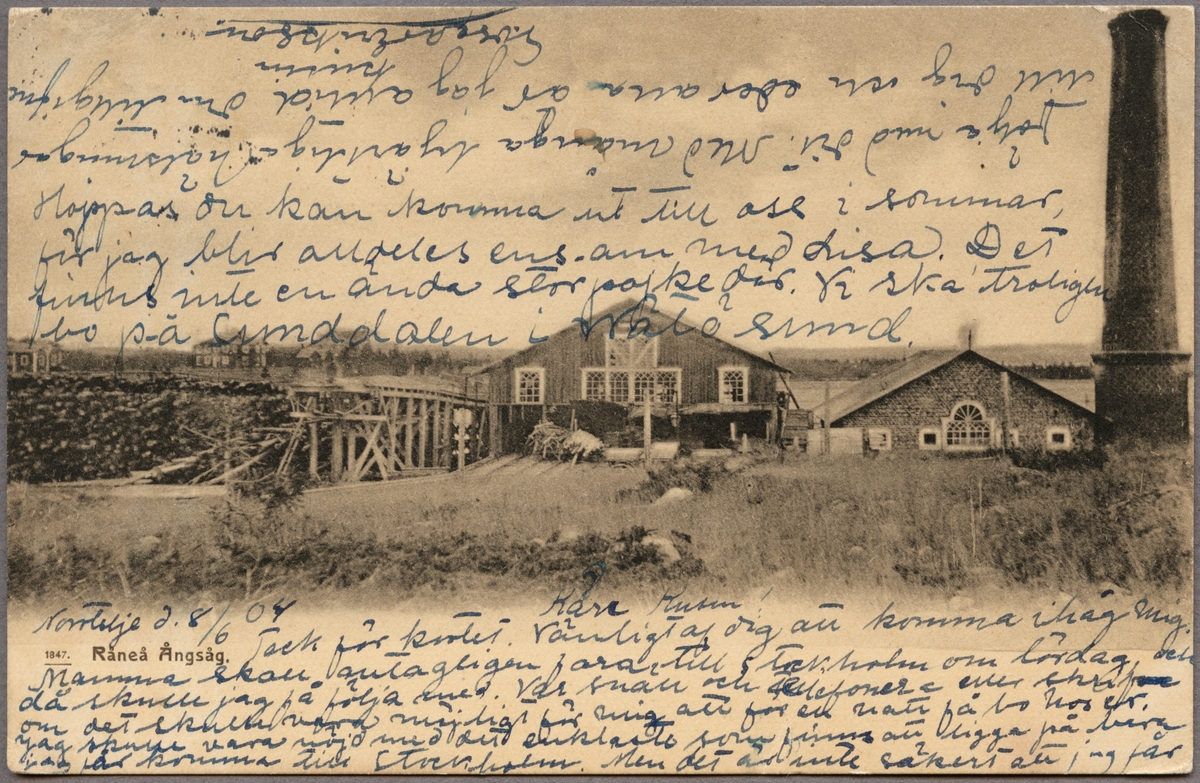 Norrtelje d. 8/6 04
Käre Kusin!
Tack för kortet. Vänligt af dig att komma ihåg mig.
1847. Råneå Ångsåg.
Mamma skall antagligen fara till Stockholm om lördag, och
då skulle jag få följa med. Var snäll och telefonera eller skrif
om det skulle vara möjligt för mig att för en natt få bo hos er.
Jag skulle vara nöjd med det enklaste som finns att ligga på bara
jag får komma till Stockholm. Men det är inte säkert att jag får
följa med dit. Med många hjärtliga hälsningar
till dig och eder alla är jag alltid din tillgifne
kusin
Erikson
Hoppas du kan komma ut till oss i sommar,
för jag blir alldeles ensam med Lisa. Det
finns inte en ända stor pojke där. Vi ska troligen
bo på Sunddalen i Vätösund.